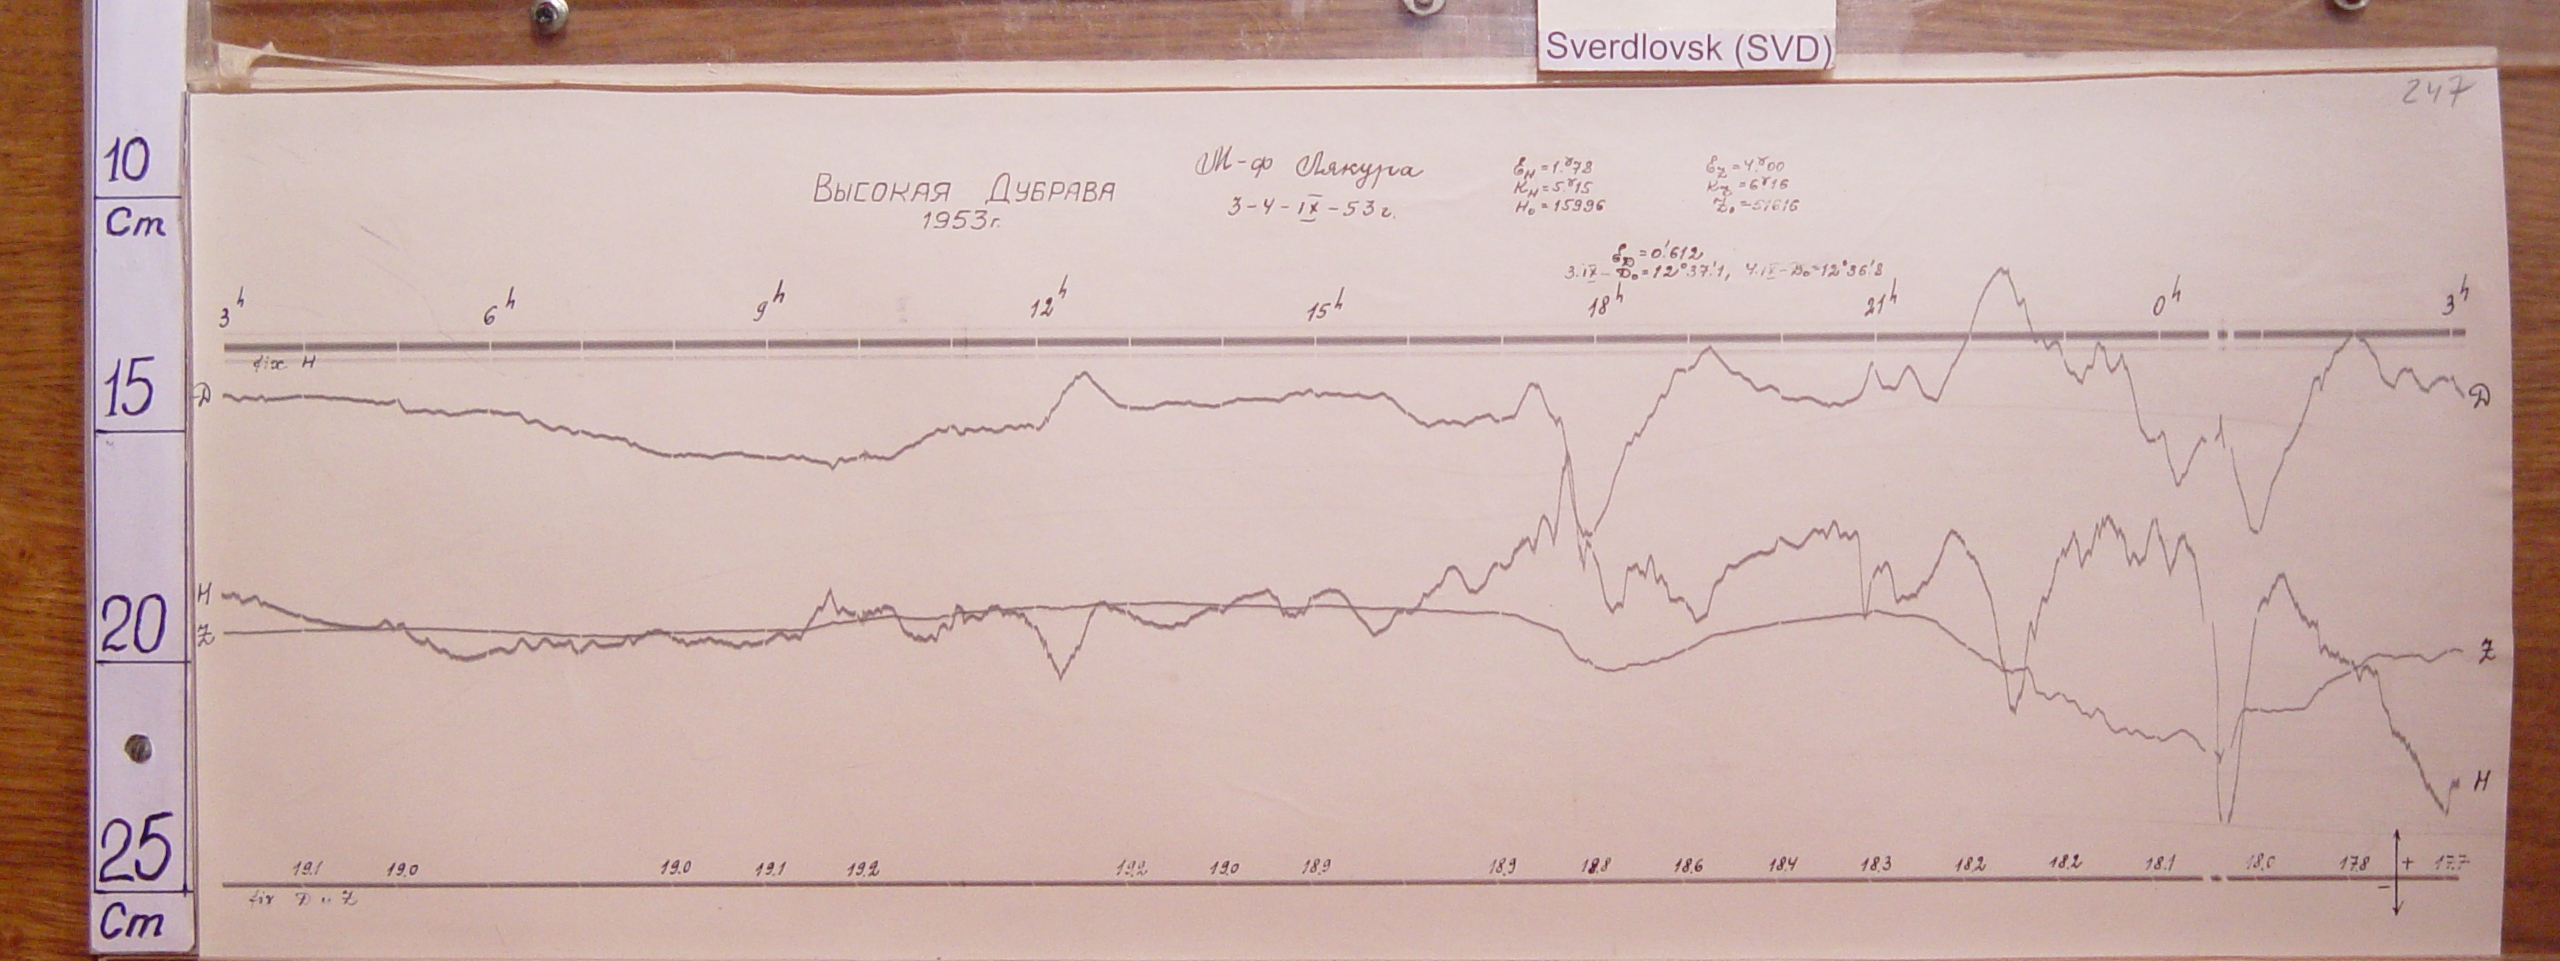 Sverdlovsk (SVD)
247
10
Cm
15
20
25
Cm
ВЫСОКАЯ ДУБРАВА
1953г.
М-ф Лякура
3-4-IX-53г.
Ɛн=1.ᵞ78
Kн=5.ᵞ15
H₀=15996
Ɛz=4.ᵞ00
Kz=6ᵞ16
Z₀=51616
ƐD=0'.612
3.IX-D₀=12°37'.1, 4.IX-D₀=12°36'.8
3h 6h 9h 12h 15h 18h 21h 0h 3h
fix H
D D
H
Z
Z
H
19.1 19.0 19.0 19.1 19.2 19.2 19.0 18.9 18.9 18.8 18.6 18.4 18.3 18.2 18.2 18.1 18.0 17.8 + 17.7
-
fix D и Z